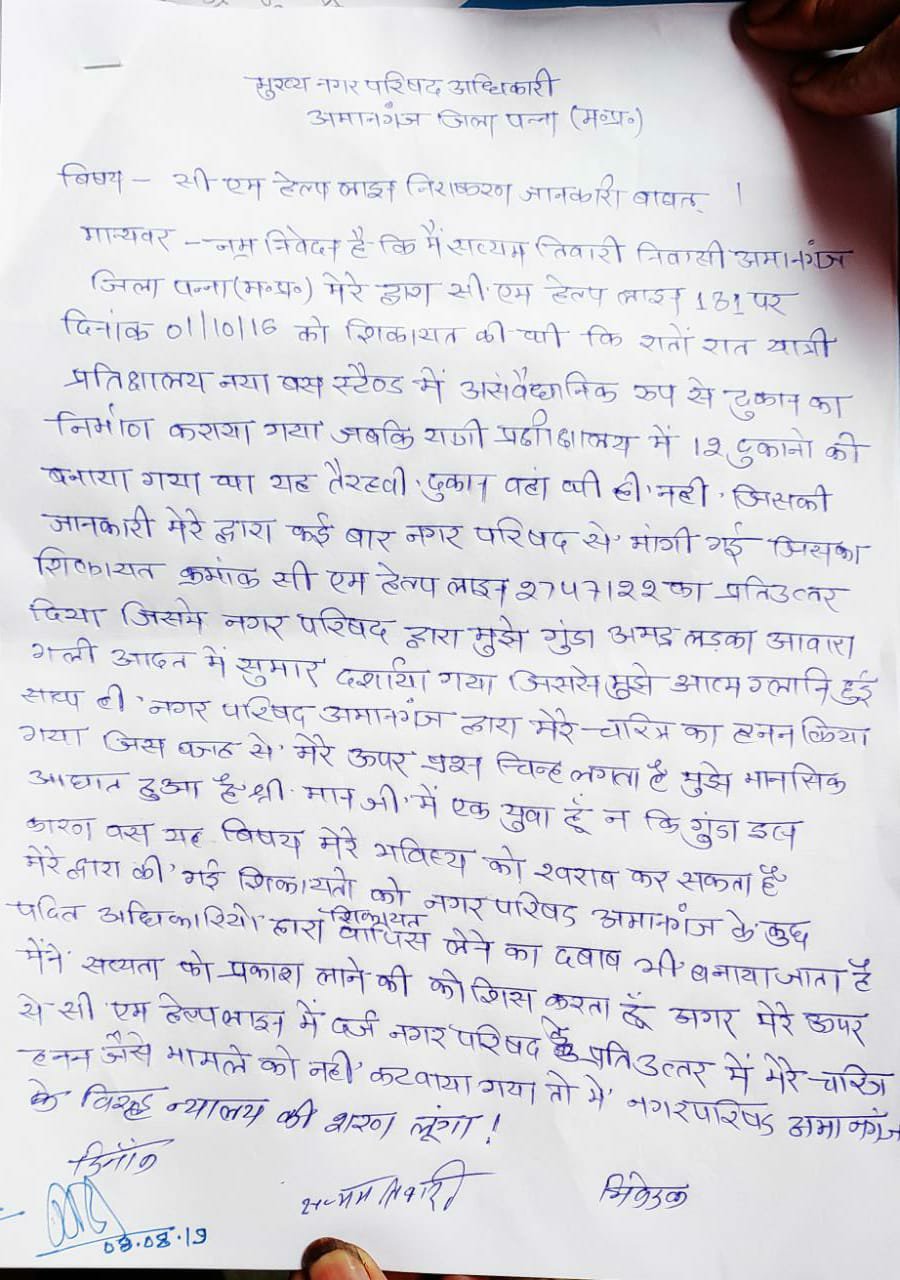 मुख्य नगर परिषद अधिकारी
अमानगंज जिला पन्ना (म॰प्र॰)
विषय - सी एम हेल्प लाइन निराकरण जानकारी बावत् !
मान्यवर - नम्र निवेदन है कि मैं सत्यम तिवारी निवासी अमानगंज
जिला पन्ना (म॰प्र॰) मेरे द्वारा सी एम हेल्प लाइन 181 पर
दिनांक 01/10/16 को शिकायत की थी कि रातों रात यात्री
प्रतिक्षालय नया बस स्टैण्ड में असंवैधानिक रुप से दुकान का
निर्माण कराया गया जबकि यात्री प्रतीक्षालय में 12 दुकानो को
बनाया गया था यह तैरहवी दुकान वहां थी ही नही जिसकी
जानकारी मेरे द्वारा कई बार नगर परिषद से मांगी गई जिसका
शिकायत क्रमांक सी एम हेल्प लाइन 2747122 का प्रतिउत्तर
दिया जिसमे नगर परिषद द्वारा मुझे गुंडा अभद्र लड़का आवारा
गली आदत में सुमार दर्शाया गया जिससे मुझे आत्म ग्लानि हुई
साथ ही नगर परिषद अमानगंज द्वारा मेरे चरित्र का हनन किया
गया जिस वजह से मेरे ऊपर प्रश्न चिन्ह लगता है मुझे मानसिक
आघात हुआ है श्री मान जी में एक युवा हूँ न कि गुंडा इस
कारण वस यह विषय मेरे भविष्य को खराब कर सकता है
मेरे द्वारा की गई शिकायतो को नगर परिषद अमानगंज के कुछ
पदित अधिकारियो द्वारा शिकायत वापिस लेने का दबाब भी बनाया जाता है
मैंने सत्यता को प्रकाश लाने की कोशिस करता हूँ अगर मेरे ऊपर
से सी एम हेल्प लाइन में दर्ज नगर परिषद के प्रतिउत्तर में मेरे चरित्र
हनन जैसे मामले को नही कटवाया गया तो मे नगर परिषद अमानगंज
के विरुद्ध न्यालय की शरण लूंगा !
दिनाँक
सत्यम तिवारी निवेदक
08.08.19